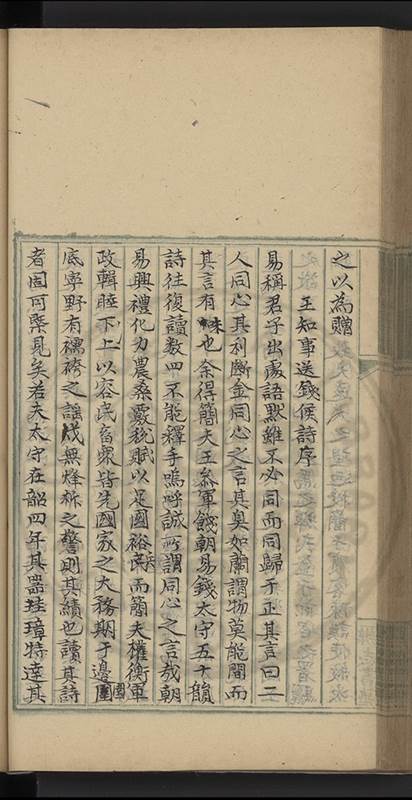 之以為贈
王知事送錢侯詩序
易稱君子出處語默雖不必同而同歸于正其言曰二
人同心其利斷金同心之言其臭如蘭謂物莫能間而
其言有味也余得簡夫王叅軍餞朝易錢太守五十韻
詩往復讀数四不能釋手嗚呼誠所謂同心之言哉朝
易興禮化力農桑覈稅賦以足國裕民而簡夫權衡軍
政輯睦下上以容民畜衆皆先國家之大務期于邊圉
底寧野有襦袴之謡戍無烽柝之警則其績也讀其詩
者固可槩見矣若夫太守在韶四年其器珪璋特達其